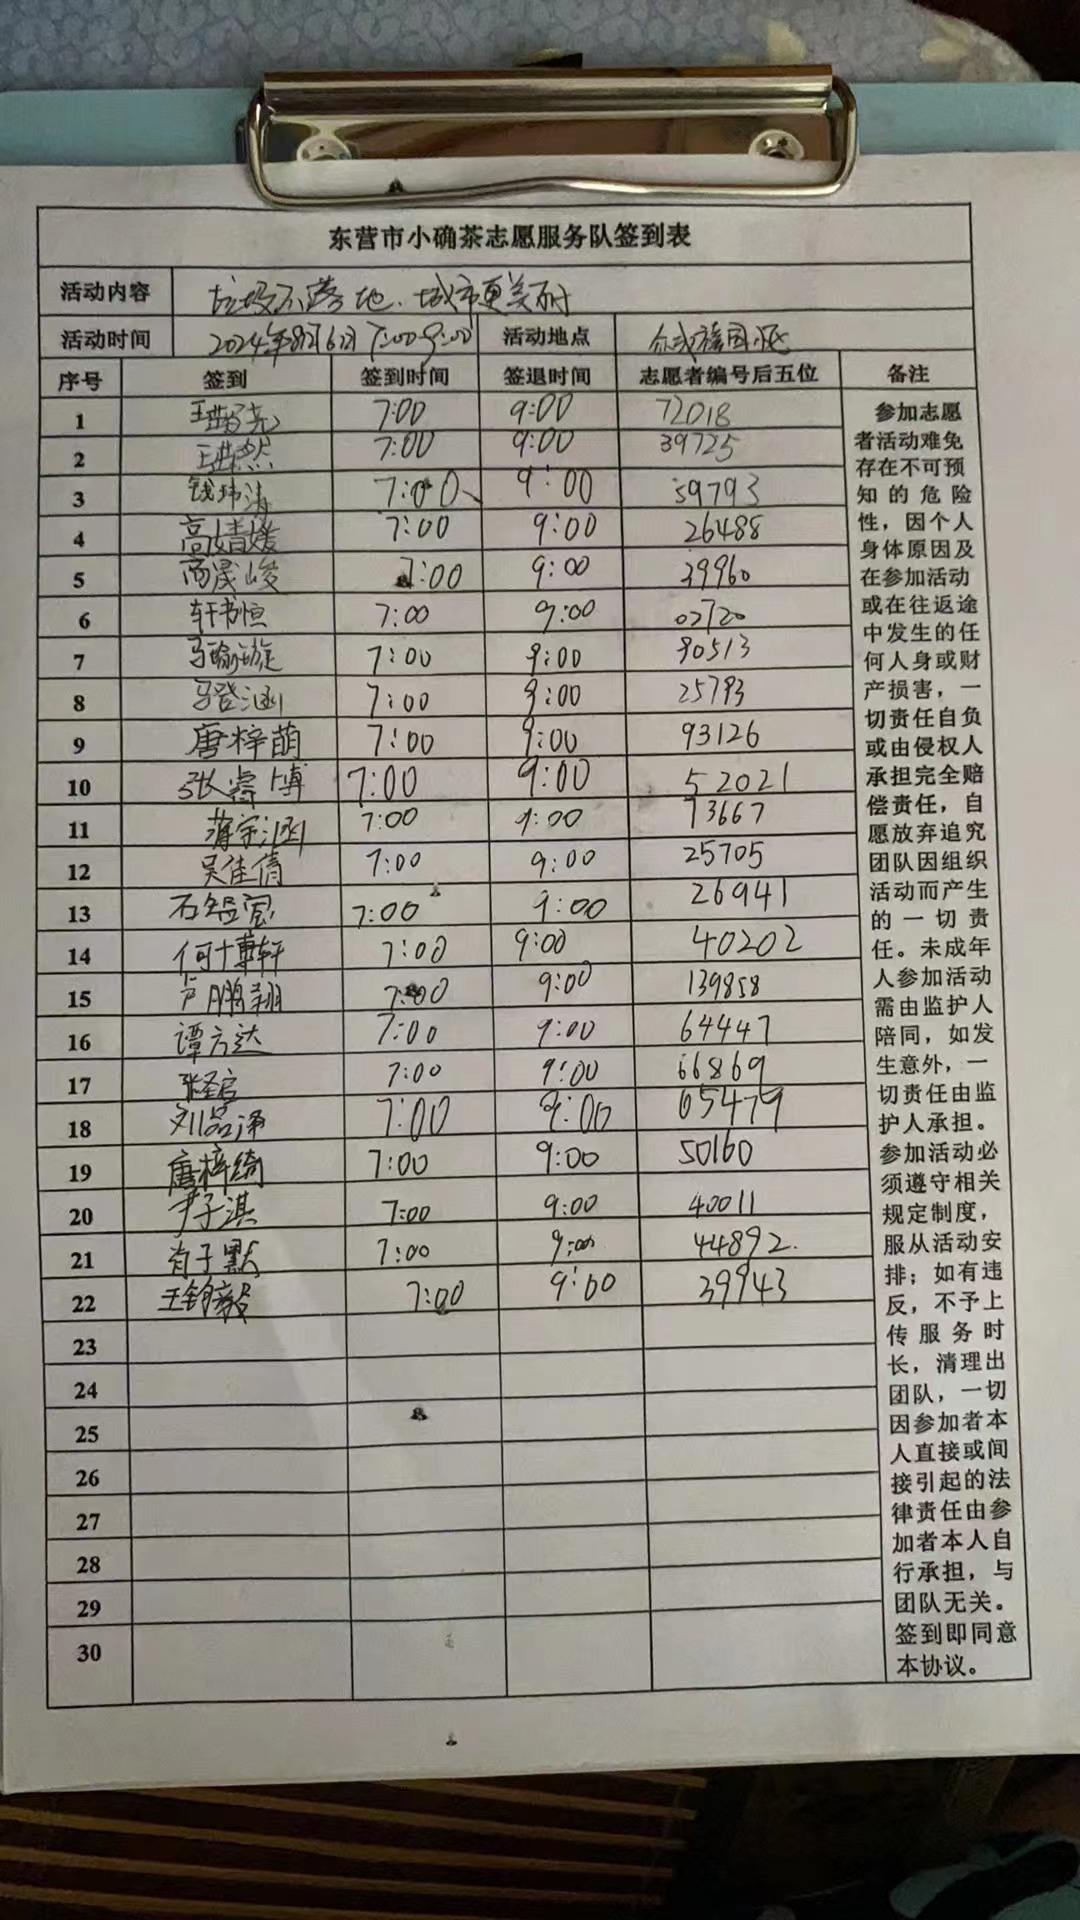 东营市小确茶志愿服务队签到表
活动内容 垃圾不落地、城市更美好
活动时间 2024年8月6日 7:00-9:00 活动地点
序号 签到 签到时间 签退时间 志愿者编号后五位 备注
1 7:00 9:00 72018
2 7:00 9:00 39725
3 钱玮清 7:00 9:00 59793
4 高婧媛 7:00 9:00 26488
5 高晟峻 7:00 9:00 39960
6 轩书恒 7:00 9:00 02720
7 马瑜璇 7:00 9:00 90513
8 马登涵 7:00 9:00 25793
9 唐梓萌 7:00 9:00 93126
10 张睿博 7:00 9:00 52021
11 蒋宗涵 7:00 9:00 13667
12 吴佳倩 7:00 9:00 25705
13 7:00 9:00 26941
14 何博轩 7:00 9:00 40202
15 芦鹏翔 7:00 9:00 139858
16 谭方达 7:00 9:00 64447
17 张圣启 7:00 9:00 66869
18 刘茗泽 7:00 9:00 65479
19 唐梓绮 7:00 9:00 50160
20 尹子淇 7:00 9:00 40011
21 肖子默 7:00 9:00 44892.
22 7:00 9:00 39943
23
24
25
26
27
28
29
30
参加志愿
者活动难免
存在不可预
知的危险
性，因个人
身体原因及
在参加活动
或在往返途
中发生的任
何人身或财
产损害，一
切责任自负
或由侵权人
承担完全赔
偿责任，自
愿放弃追究
团队因组织
活动而产生
的一切责
任。未成年
人参加活动
需由监护人
陪同，如发
生意外，一
切责任由监
护人承担。
参加活动必
须遵守相关
规定制度，
服从活动安
排；如有违
反，不予上
传服务时
长，清理出
团队，一切
因参加者本
人直接或间
接引起的法
律责任由参
加者本人自
行承担，与
团队无关。
签到即同意
本协议。